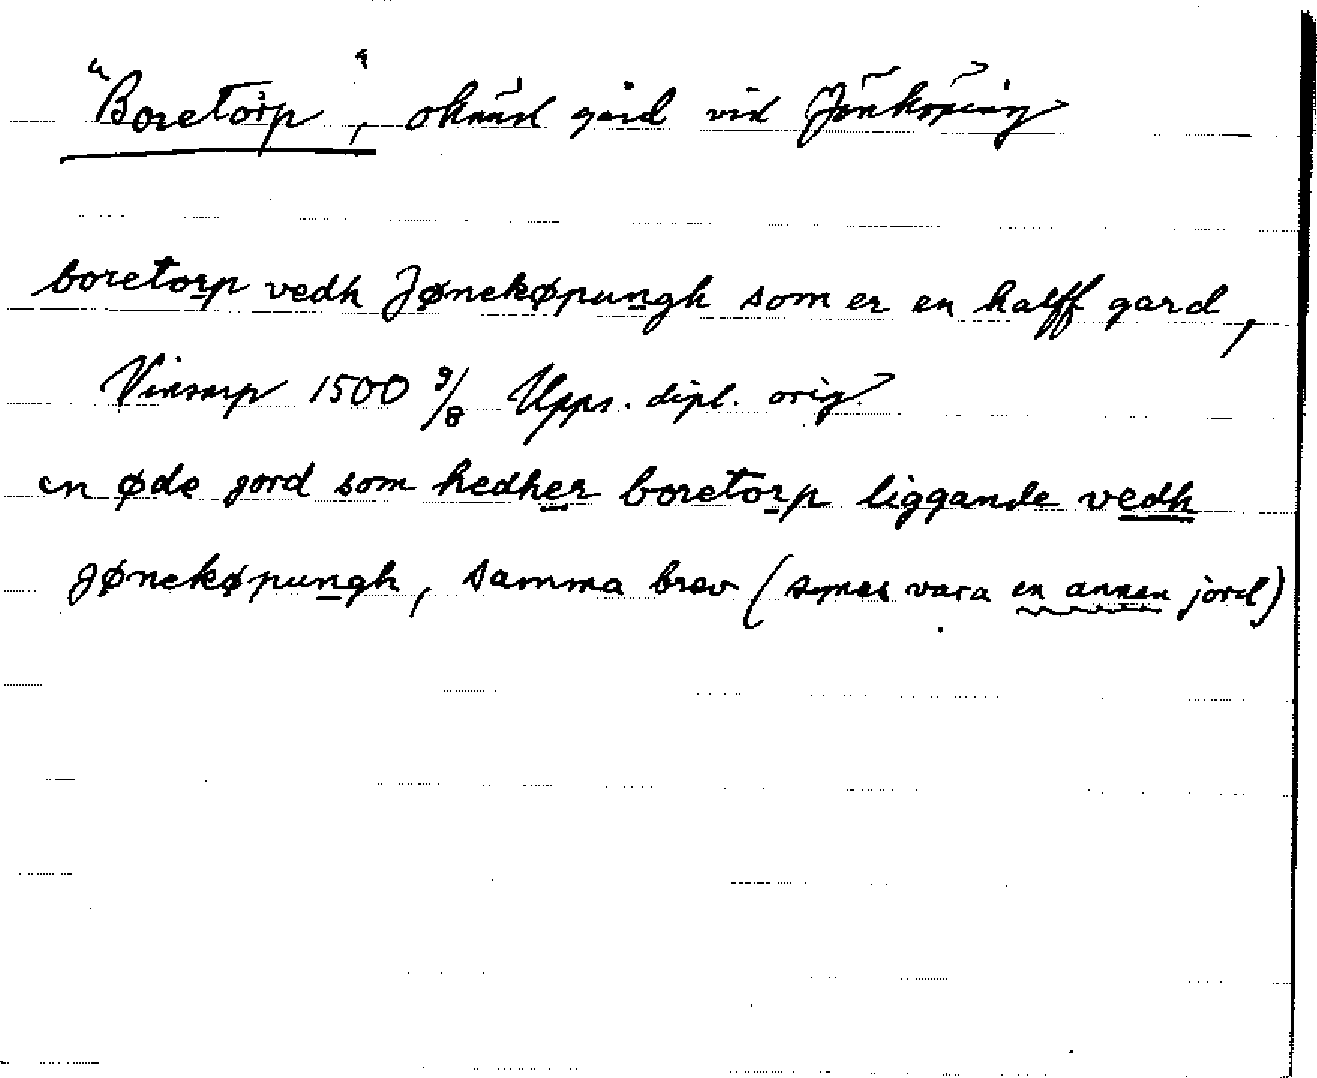 "Boretorp", okänd gård vid Jönköping
boretorp vedh Jønekøpungh som er en halff gard,
Vinsarp 1500 9/8 Upps. dipl. orig
en øde jord som hedher boretorp liggande vedh
Jønekøpungh, samma brev (synes vara en annen jord)